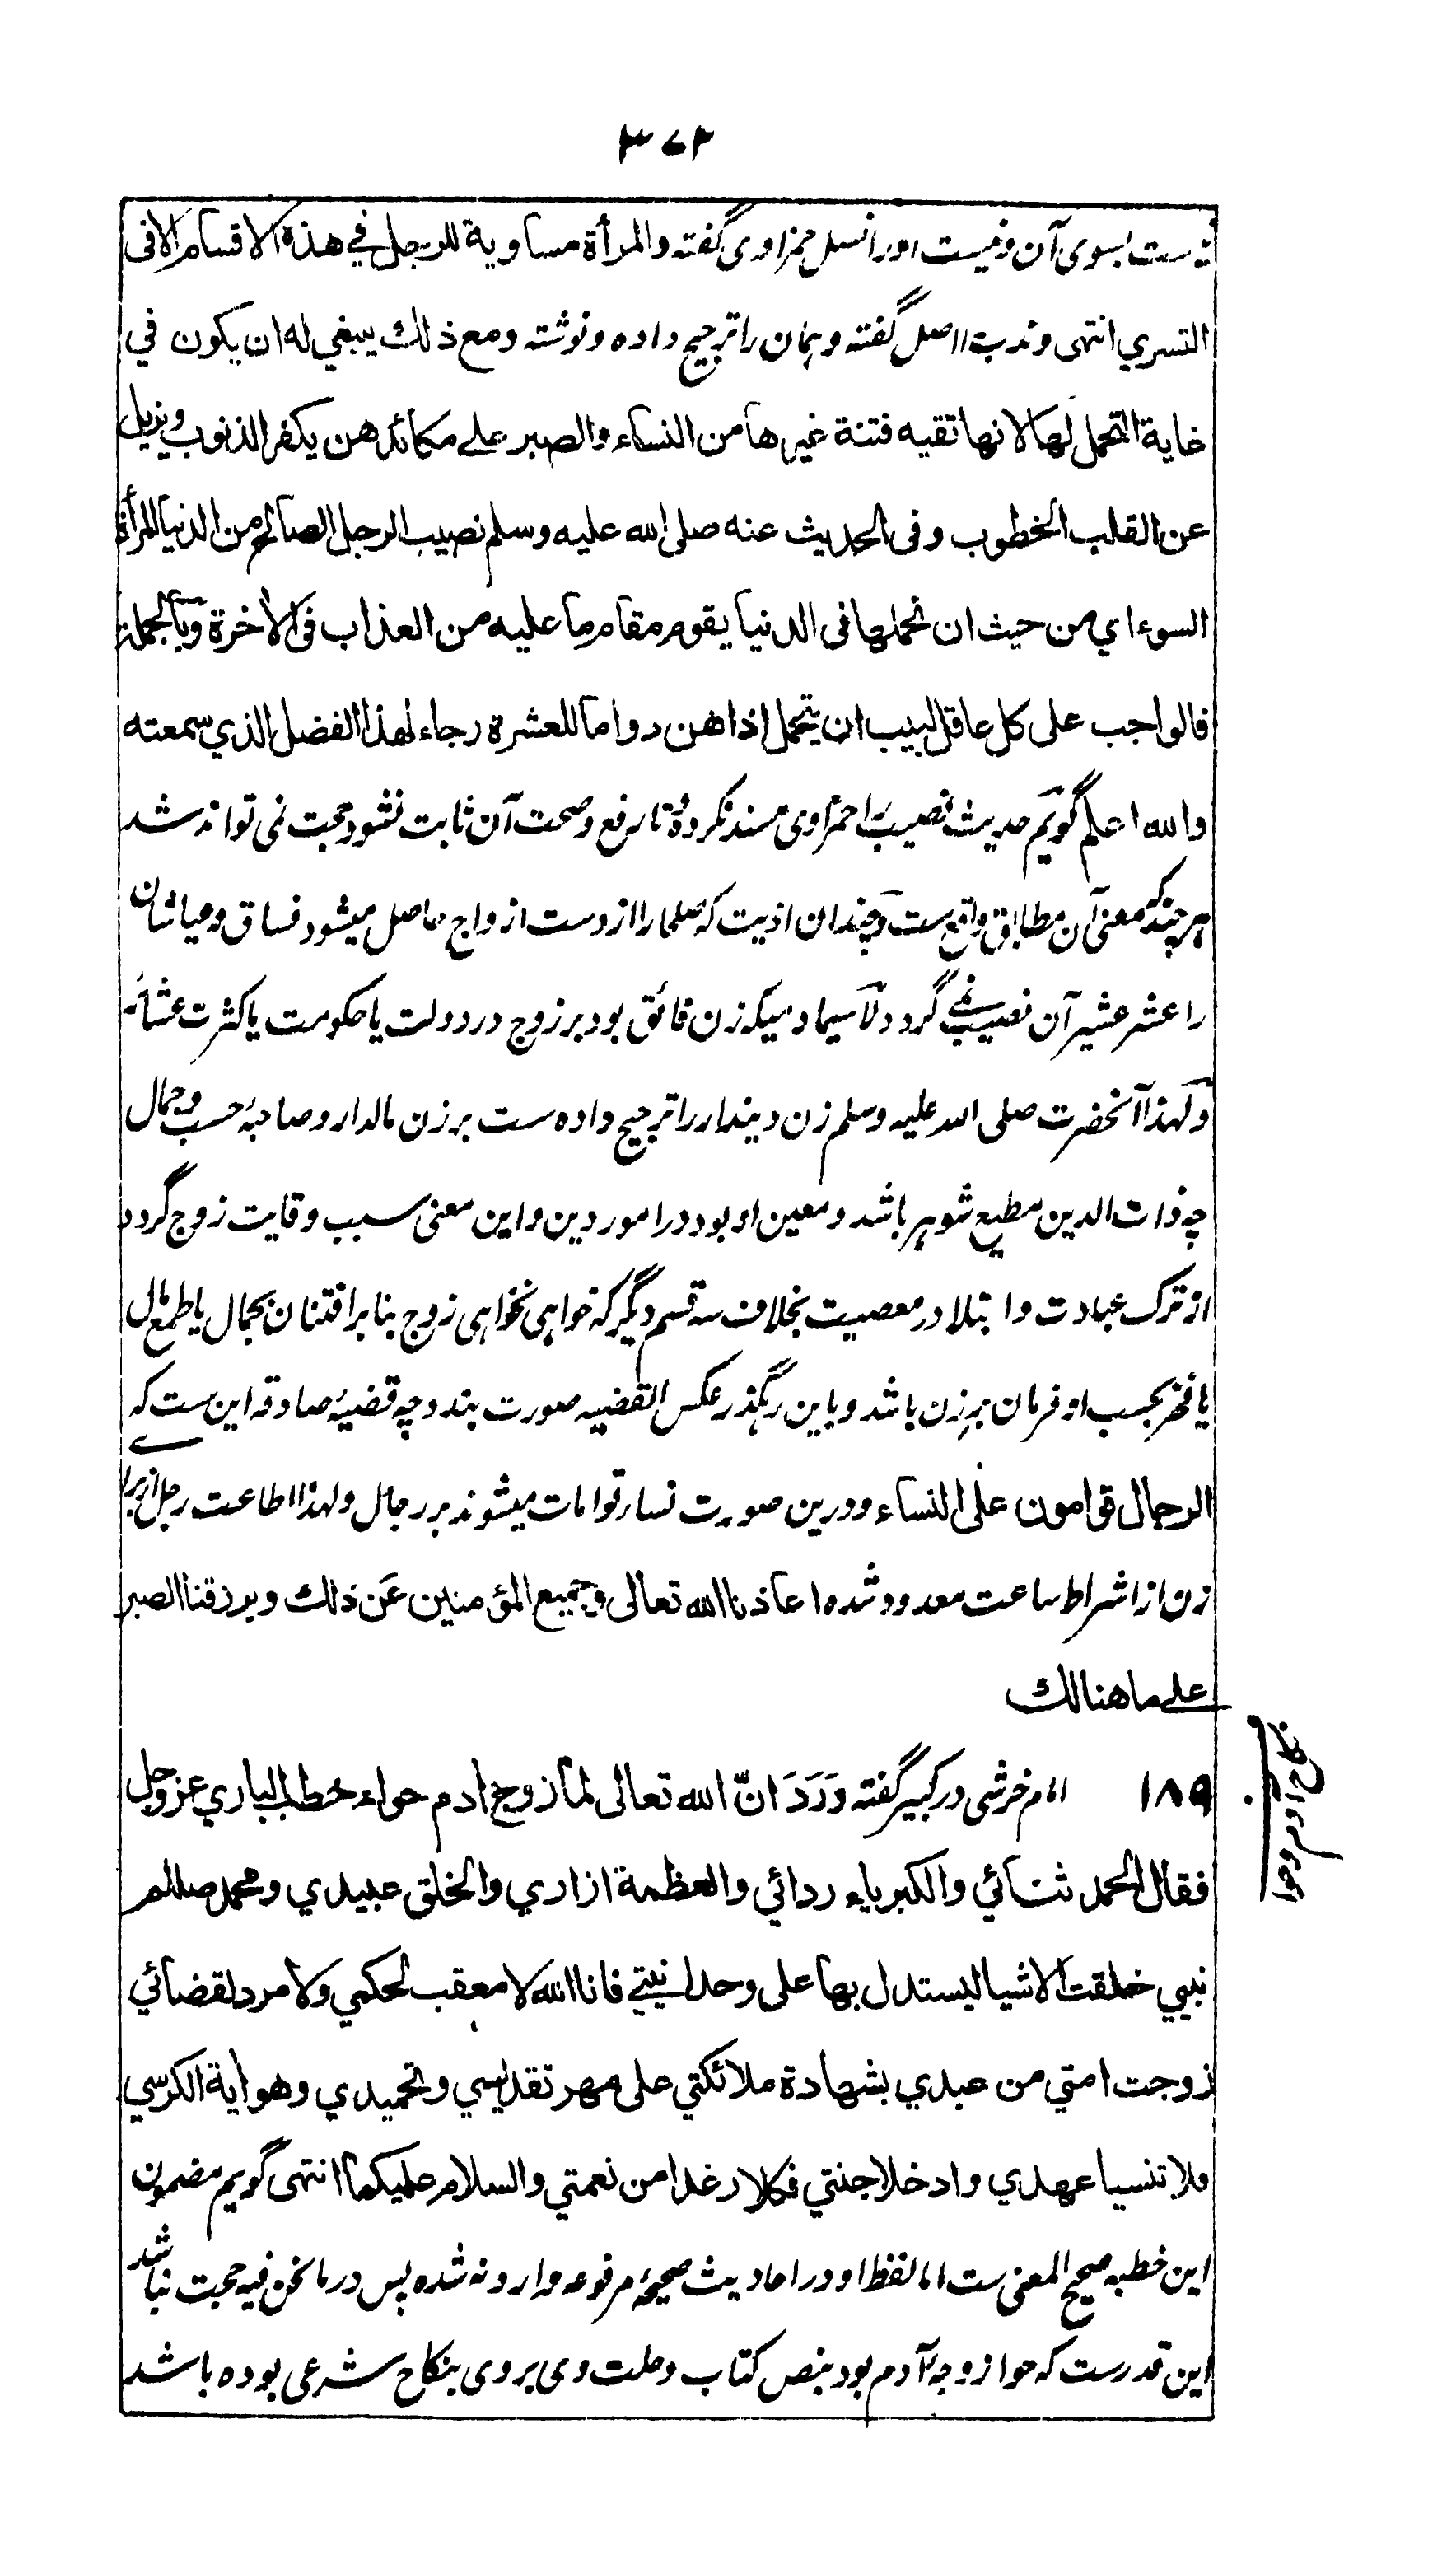 ۳۷۲
ست بسوی آن و نیست او را نسل حمزاوی گفته والمرأة مساوية للرجل في هذه الاقسام الا فی
التسري انتهى و ندب را اصل گفته و همان را ترجیح داده و نوشته ومع ذلك ينبغي له ان يكون في
غاية التحمل لها لانها تقيه فتنة غيرها من النساء والصبر على مكائدهن يكفر الذنوب ويزيل
عن القلب الخطوب وفى الحديث عنه صلى الله عليه وسلم نصيب الرجل الصالح من الدنيا المرأة
السوء اي من حيث ان تحملها فى الدنيا يقوم مقام ما عليه من العذاب فى الأخرة وبالجملة
فالواجب على كل عاقل لبيب ان يتحمل اذاهن دواما للعشرة رجاء لهذا الفضل الذي سمعته
والله اعلم گویم حدیث نصیب را حمزاوی مسند نکرده و تا رفع و صحت آن ثابت نشود حجت نمی تواند شد
هر چند که معنی آن مطابق واقع ست و چندان اذیت که صلحا را از دست ازواج حاصل میشود فساق و عیاشان
را عشر عشیر آن نصیب نمی گردد لا سیما دمیکه زن فائق بود بر زوج در دولت یا حکومت یا کثرت عشائر
و لهذا آنحضرت صلى الله عليه وسلم زن دیندار را ترجیح داده ست بر زن مالدار و صاحبۂ حسب و جمال
چه ذات الدین مطیع شوهر باشد و معین او بود در امور دین و این معنی سبب وقایت زوج گردد
از ترک عبادت و ابتلا در معصیت بخلاف سه قسم دیگر که خواهی نخواهی زوج بنا بر افتنان بجمال یا طمع مال
یا فخر بحسب او فرمان بر زن باشد و باین رهگذر عکس القضیه صورت بندد چه قضیۂ صادقه این ست که
الرجال قوامون على النساء و درین صورت نساء قوامات میشوند بر رجال و لهذا اطاعت رجل از برای
زن از اشراط ساعت معدود شده اعاذنا الله تعالى وجميع المؤمنين عن ذلك ويرزقنا الصبر
على ما هنالك
۱۸۹ امام خرشی در کبیر گفته وَرَدَ انّ الله تعالى لما زوج ادم حواء خطب الباري عز وجل
فقال الحمد ثنائي والكبرياء ردائي والعظمة ازاري والخلق عبيدي ومحمد صللم
نبيي خلقت الاشيا ليستدل بها على وحدانيتي فانا الله لا معقب لحكمي ولا مرد لقضائي
زوجت امتي من عبدي بشهادة ملائكتي على مهر تقديسي وتحميدي وهو اية الكرسي
ولا تنسيا عهدي وادخلا جنتي فكلا رغدا من نعمتي والسلام عليكما انتهى گویم مضمون
این خطبه صحیح المعنی ست اما لفظ او در احادیث صحیحۂ مرفوعه وارد نه شده پس در ما نحن فیه حجت نباشد
این قدرست که حوا زوجۂ آدم بود بنص کتاب و حلت وی بر وی بنکاح شرعی بوده باشد